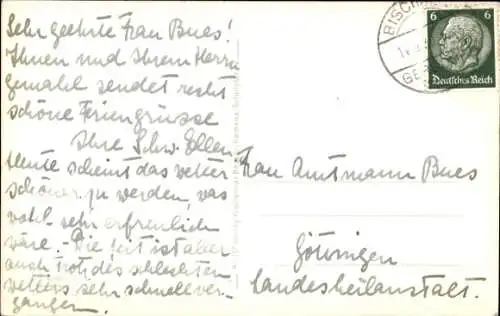 Sehr geehrte Frau Bues!
Ihnen und Ihrem Herrn
gemahl sendet recht
schöne Feriengrüsse
Ihre Schw. Ellen.
Heute scheint das vetter
schöner zu werden, was
wohl sehr erfreulich
wäre. - Die Zeit ist aber
auch trotz des schlechten
vetters sehr schnell ver-
gangen.
Frau Amtmann Bues
Göttingen
Landesheilanstalt.
6 6
Deutsches Reich
BISCH